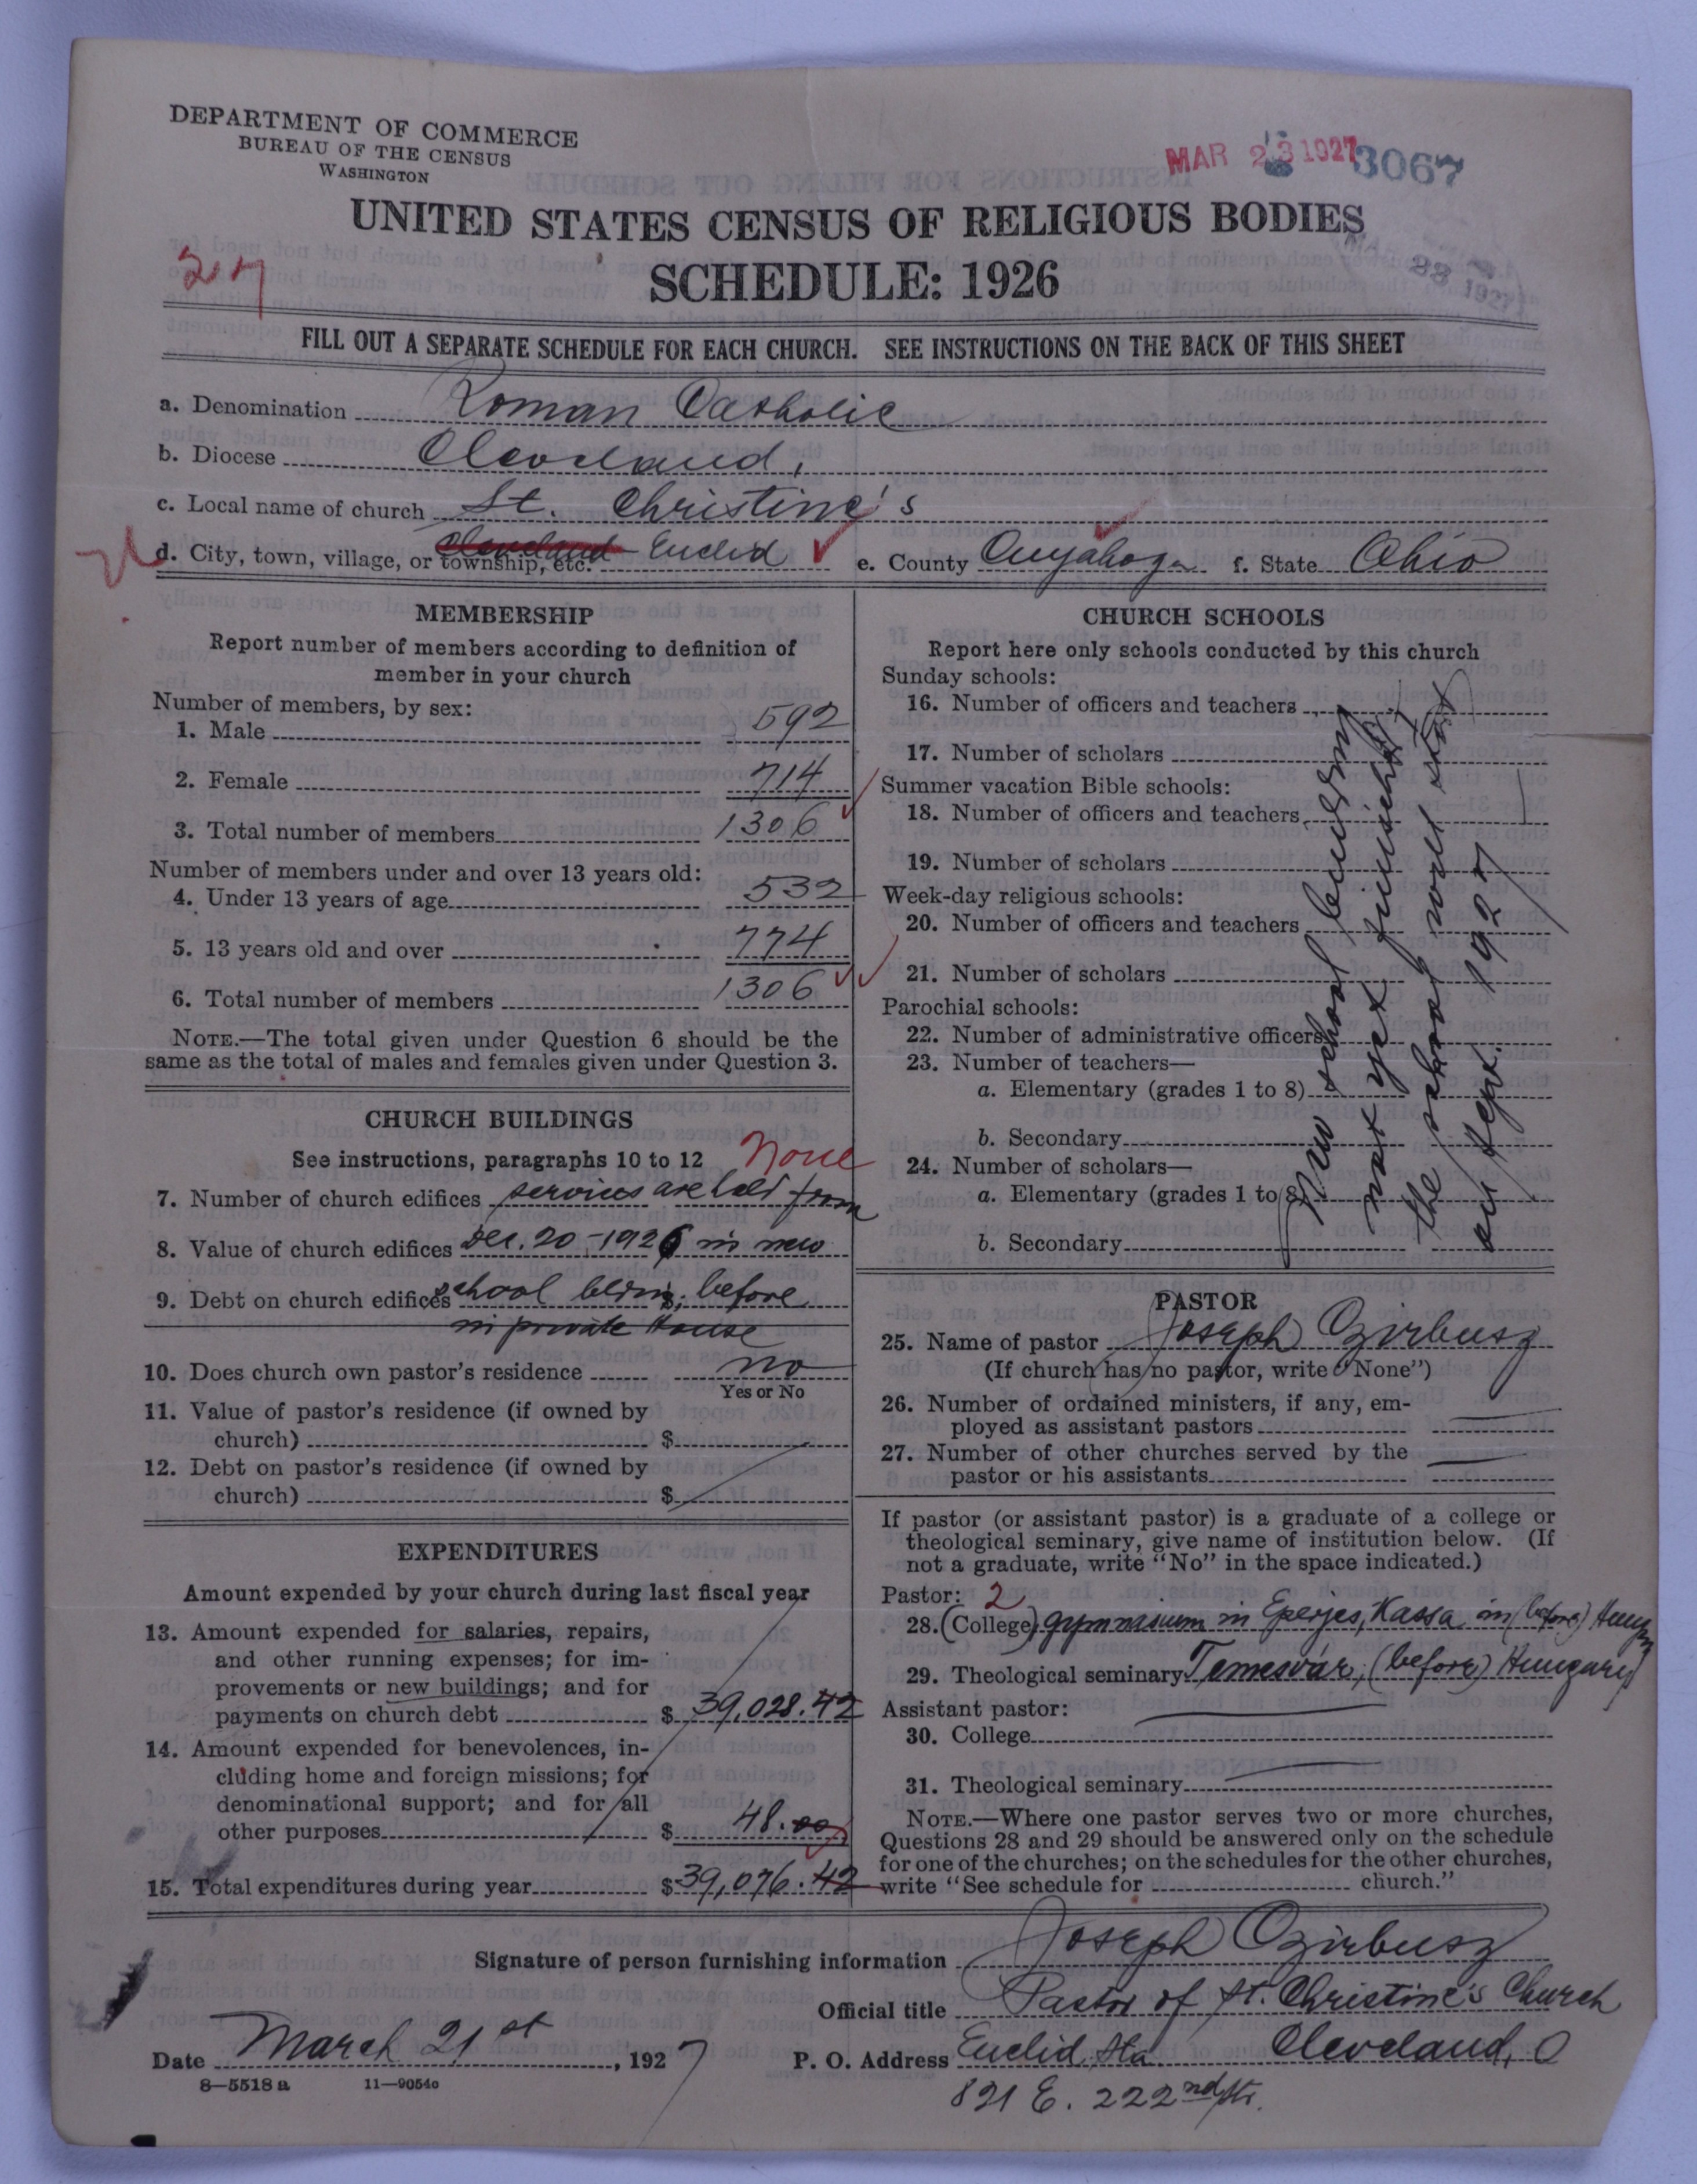 DEPARTMENT OF COMMERCE
BUREAU OF THE CENSUS
WASHINGTON
MAR 23 1927
3067
UNITED STATES CENSUS OF RELIGIOUS BODIES
SCHEDULE: 1926
FILL OUT A SEPARATE SCHEDULE FOR EACH CHURCH. SEE INSTRUCTIONS ON THE BACK OF THIS SHEET
a. Denomination Roman Catholic
b. Diocese Cleveland,
c. Local name of church St. Christine's
d. City, town, village, or township, etc. Cleveland Euclid e. County Cuyahoga f. State Ohio
MEMBERSHIP
Report number of members according to definition of
member in your church
Number of members, by sex:
1. Male 592
2. Female 714
3. Total number of members 1306
Number of members under and over 13 years old:
4. Under 13 years of age 532
5. 13 years old and over 774
6. Total number of members 1306
NOTE.—The total given under Question 6 should be the
same as the total of males and females given under Question 3.
CHURCH BUILDINGS
See instructions, paragraphs 10 to 12 None
7. Number of church edifices services are held from
8. Value of church edifices Dec. 20-1926 in new
9. Debt on church edifices school blding; before
in private House
10. Does church own pastor's residence no
Yes or No
11. Value of pastor's residence (if owned by
church) $
12. Debt on pastor's residence (if owned by
church) $
EXPENDITURES
Amount expended by your church during last fiscal year
13. Amount expended for salaries, repairs,
and other running expenses; for im-
provements or new buildings; and for
payments on church debt $ 39,028.42
14. Amount expended for benevolences, in-
cluding home and foreign missions; for
denominational support; and for all
other purposes $ 48.00
15. Total expenditures during year $ 39,076.42
CHURCH SCHOOLS
Report here only schools conducted by this church
Sunday schools:
16. Number of officers and teachers
17. Number of scholars
Summer vacation Bible schools:
18. Number of officers and teachers
19. Number of scholars
Week-day religious schools:
20. Number of officers and teachers
21. Number of scholars
Parochial schools:
22. Number of administrative officers
23. Number of teachers—
a. Elementary (grades 1 to 8)
b. Secondary
24. Number of scholars—
a. Elementary (grades 1 to 8)
b. Secondary
school building
not yet finished
the school will start
on Sept. 1927
PASTOR
25. Name of pastor Joseph Ozirbusz
(If church has no pastor, write "None")
26. Number of ordained ministers, if any, em-
ployed as assistant pastors
27. Number of other churches served by the
pastor or his assistants
If pastor (or assistant pastor) is a graduate of a college or
theological seminary, give name of institution below. (If
not a graduate, write "No" in the space indicated.)
Pastor: 2
28. (College) gymnasium in Eperjes, Kassa in (before) Hungary
29. Theological seminary Temesvár, (before) Hungary
Assistant pastor:
30. College
31. Theological seminary
NOTE.—Where one pastor serves two or more churches,
Questions 28 and 29 should be answered only on the schedule
for one of the churches; on the schedules for the other churches,
write "See schedule for church."
Signature of person furnishing information Joseph Ozirbusz
Official title Pastor of St. Christine's Church
Date March 21st, 1927 P. O. Address Euclid, Sta Cleveland, O
821 E. 222nd Str.
8—5518 a 11—9054c